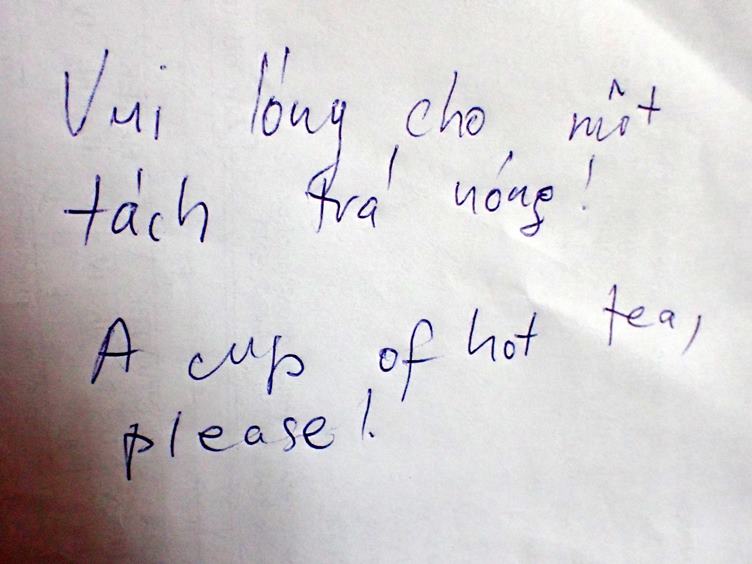 Vui lóng cho môt
tách trá nóng!
A cup of hot tea,
please!